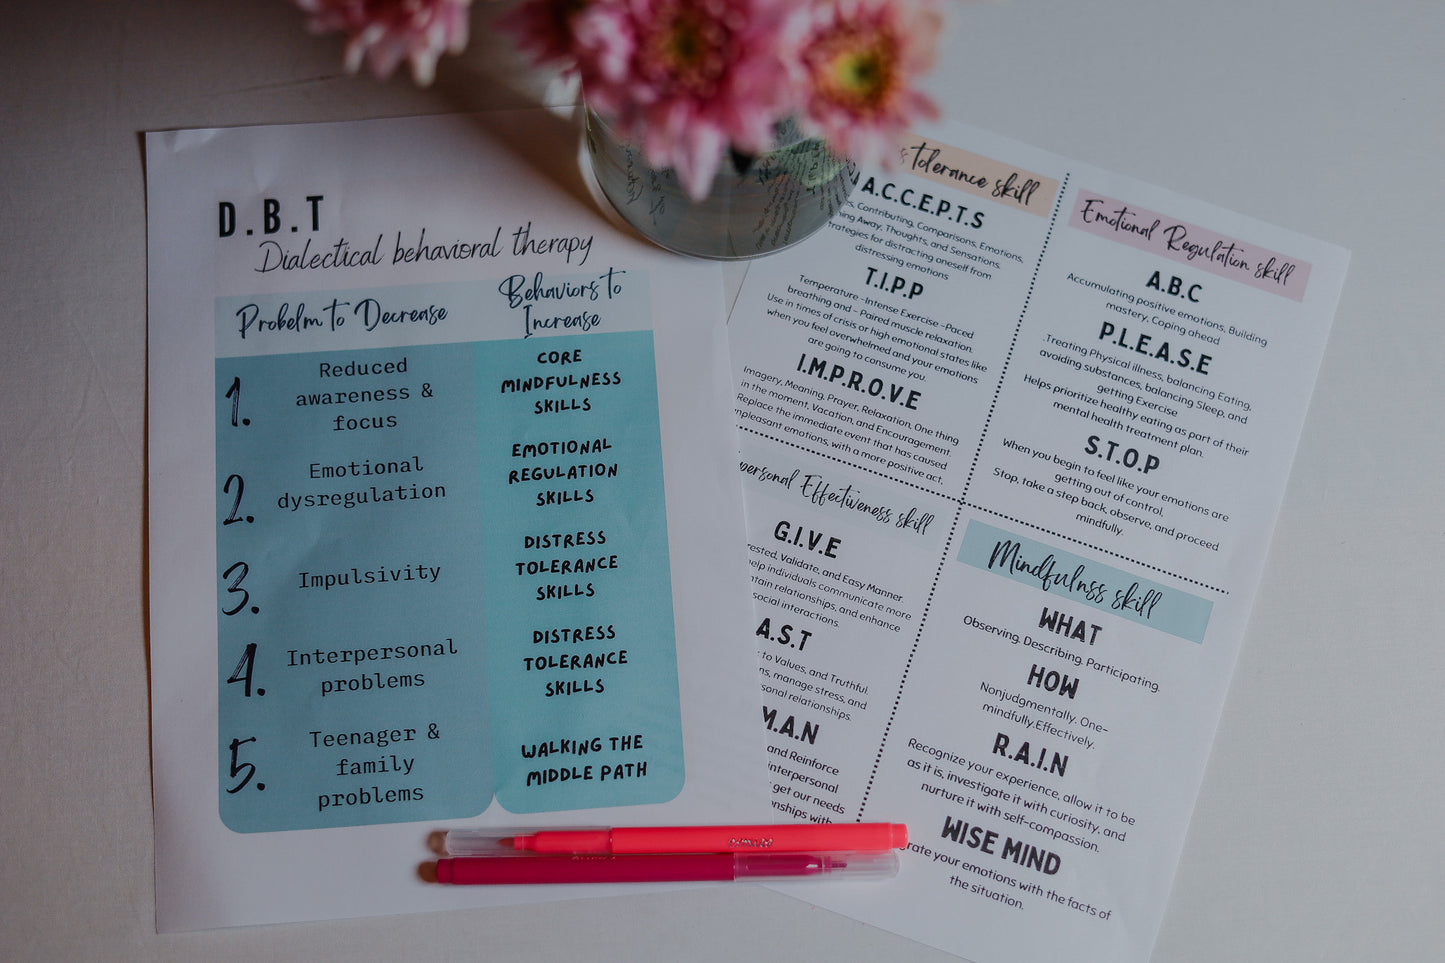 D.B.T
Dialectical behavioral therapy
Probelm to Decrease
Behaviors to
Increase
1.
Reduced
awareness &
focus
CORE
MINDFULNESS
SKILLS
2.
Emotional
dysregulation
EMOTIONAL
REGULATION
SKILLS
3.
Impulsivity
DISTRESS
TOLERANCE
SKILLS
4.
Interpersonal
problems
DISTRESS
TOLERANCE
SKILLS
5.
Teenager &
family
problems
WALKING THE
MIDDLE PATH
tolerance skill
A.C.C.E.P.T.S
Contributing, Comparisons, Emotions,
Away, Thoughts, and Sensations.
for distracting oneself from
distressing emotions
T.I.P.P
Temperature -Intense Exercise -Paced
breathing and - Paired muscle relaxation.
Use in times of crisis or high emotional states like
when you feel overwhelmed and your emotions
are going to consume you.
I.M.P.R.O.V.E
Imagery, Meaning, Prayer, Relaxation, One thing
in the moment, Vacation, and Encouragement.
Replace the immediate event that has caused
emotions, with a more positive act.
Emotional Regulation skill
A.B.C
Accumulating positive emotions, Building
mastery, Coping ahead
P.L.E.A.S.E
.Treating Physical illness, balancing Eating,
avoiding substances, balancing Sleep, and
getting Exercise
Helps prioritize healthy eating as part of their
mental health treatment plan.
S.T.O.P
When you begin to feel like your emotions are
getting out of control.
Stop, take a step back, observe, and proceed
mindfully.
Effectiveness skill
G.I.V.E
Validate, and Easy Manner.
help individuals communicate more
relationships, and enhance
social interactions.
A.S.T
to Values, and Truthful
manage stress, and
relationships.
M.A.N
and Reinforce
get our needs
with
Mindfulnss skill
WHAT
Observing. Describing. Participating.
HOW
Nonjudgmentally. One-
mindfully.Effectively.
R.A.I.N
Recognize your experience, allow it to be
as it is, investigate it with curiosity, and
nurture it with self-compassion.
WISE MIND
your emotions with the facts of
the situation.